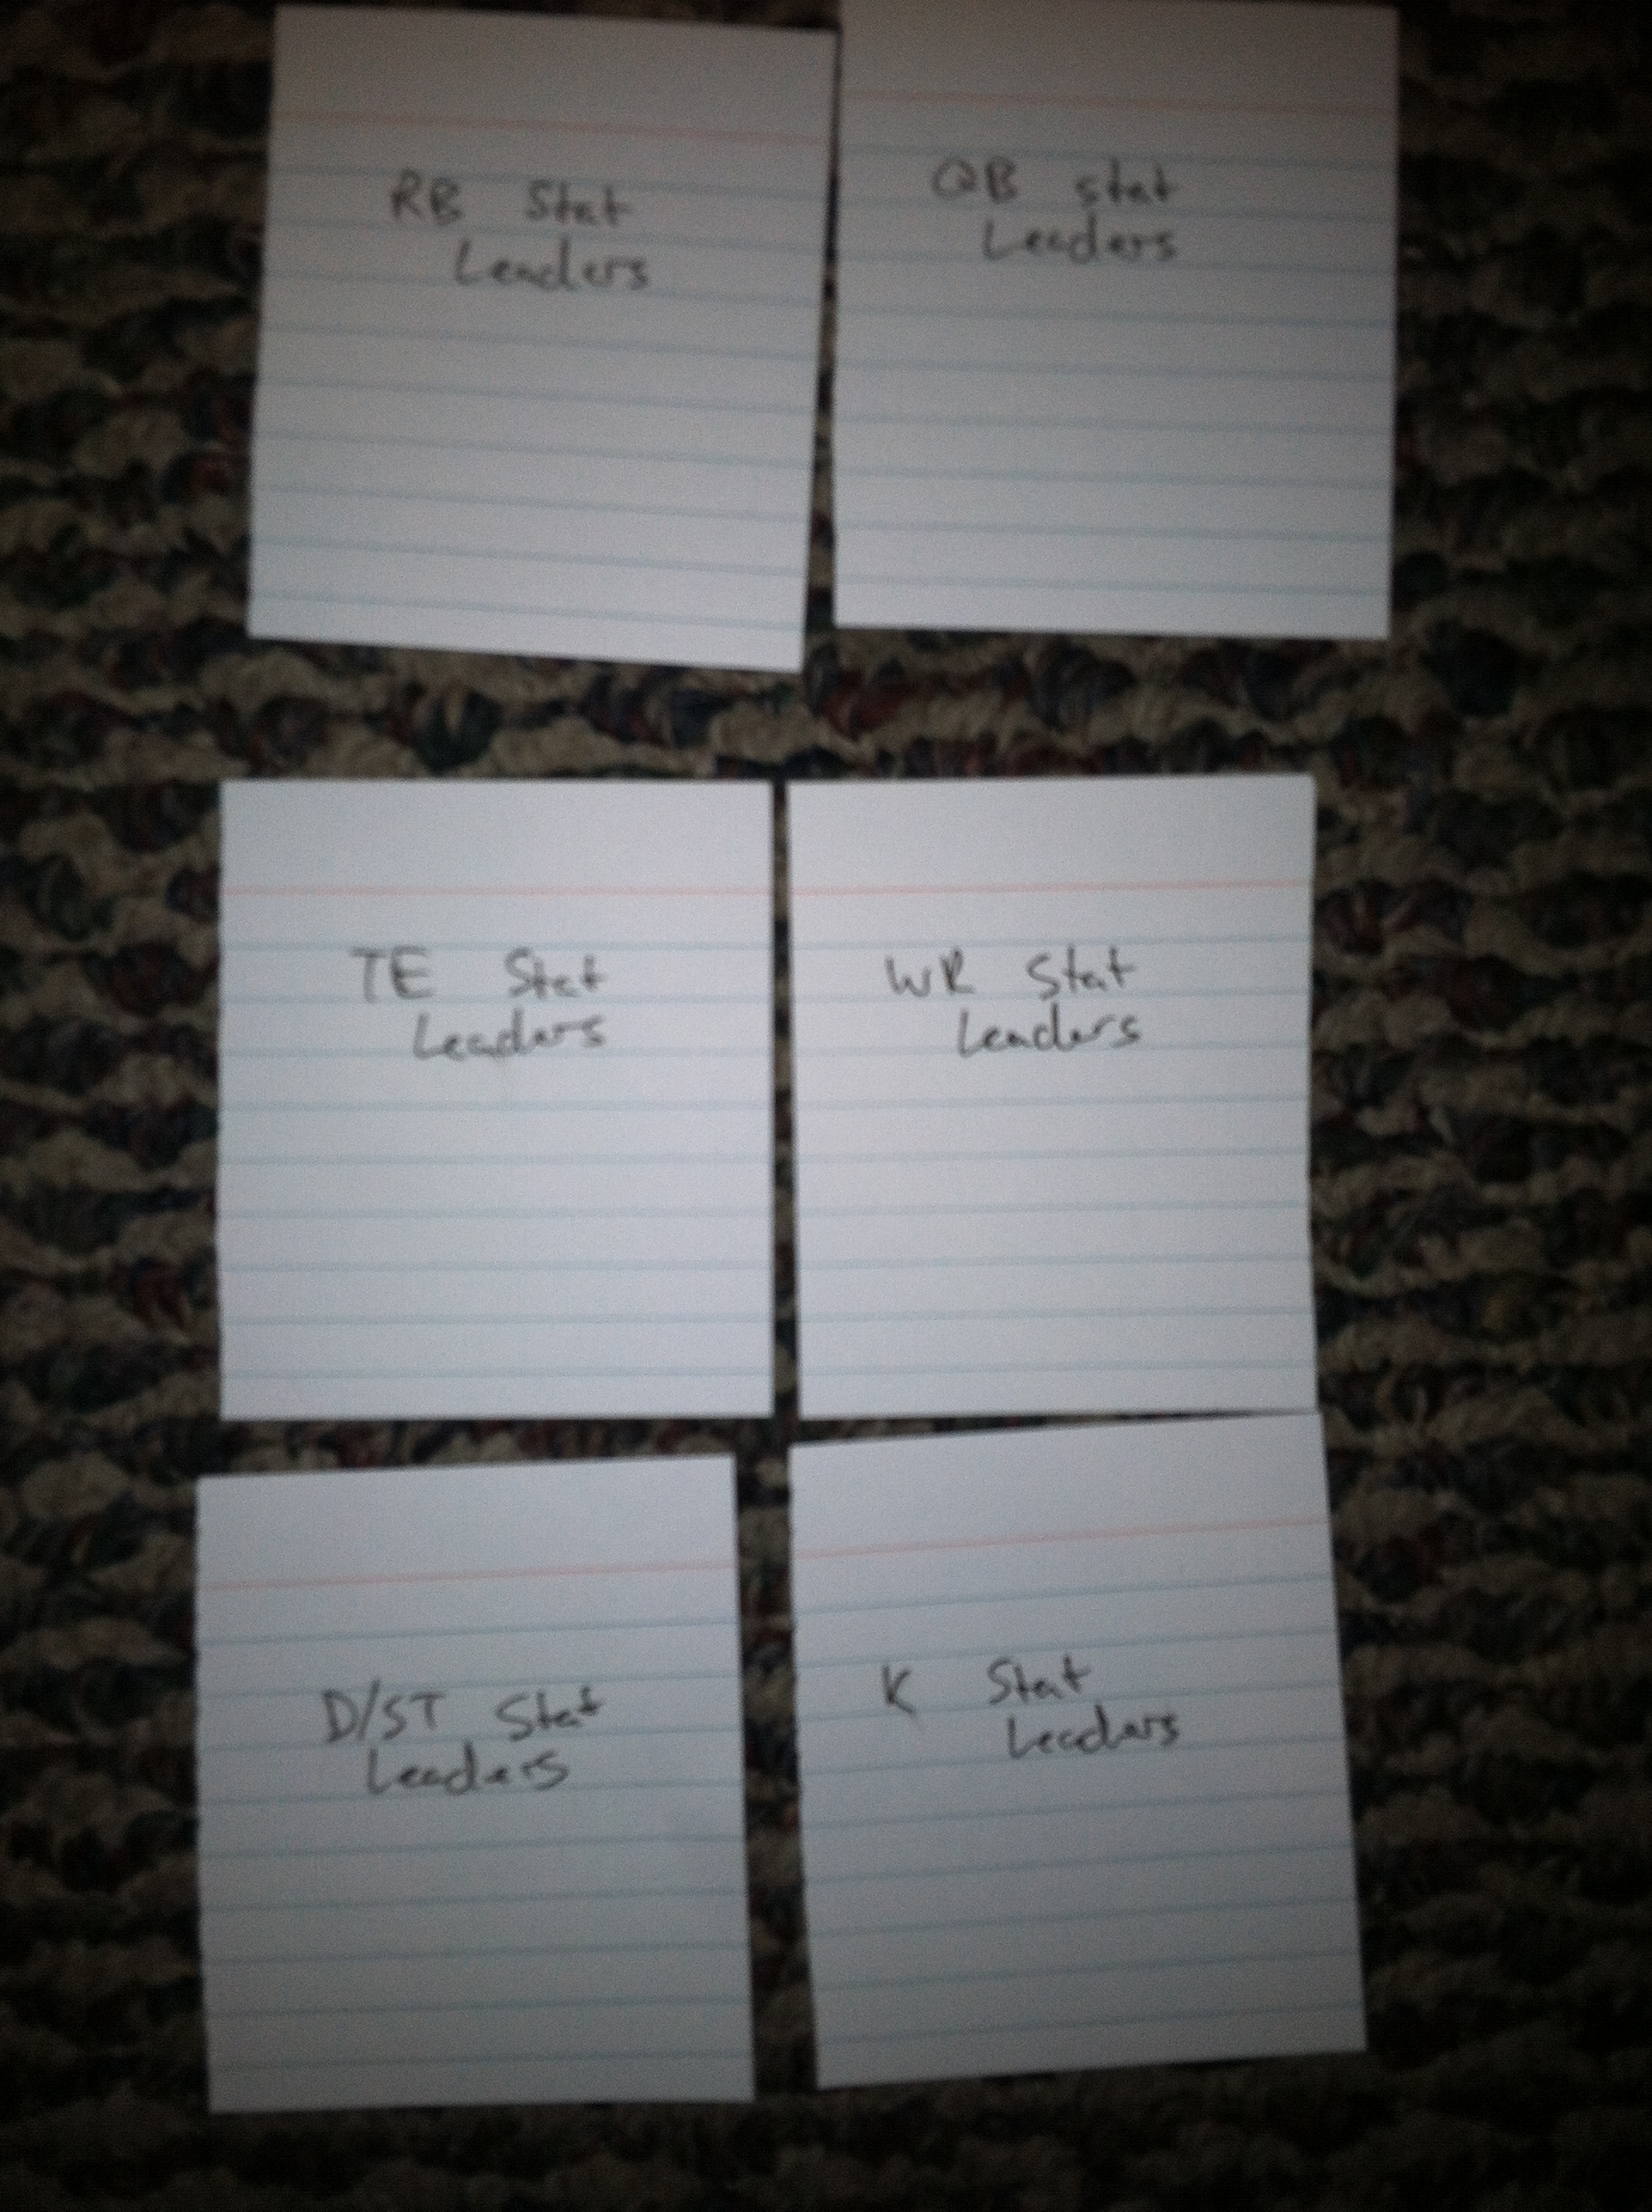 RB Stat
Leaders
QB stat
Leaders
TE Stat
Leaders
WR Stat
Leaders
D/ST Stat
Leaders
K Stat
Leaders